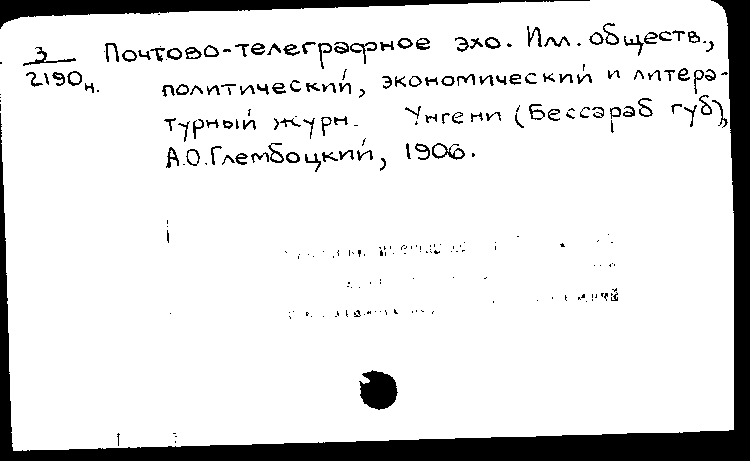 3 Почтово-телеграфное эхо. Илл. обществ.,
2190н. политический, экономический и литера-
турный журн. Унгени (Бессараб губ),
А.О.Глембоцкий, 1906.